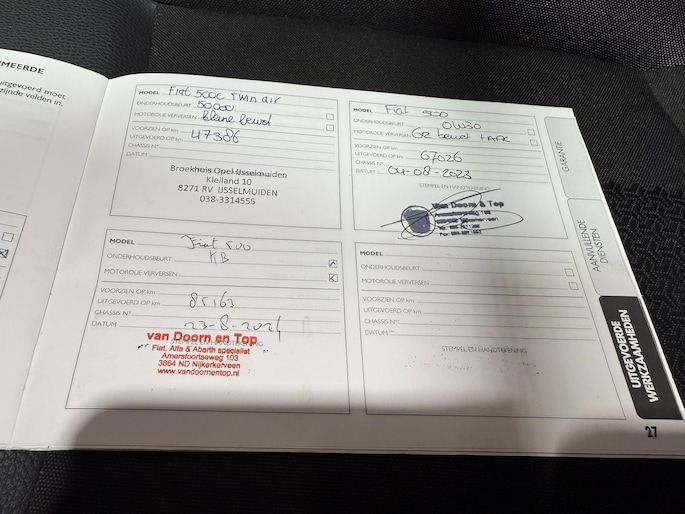 MEERDE
uitgevoerd moet
zijnde velden in.
MODEL Fiat 500C Twin air
ONDERHOUDSBEURT 50000
MOTOROLIE VERVERSEN kleine beurt
VOORZIEN OP km
UITGEVOERD OP km 47386
CHASSIS N°
DATUM
Broekhuis Opel IJsselmuiden
Kleiland 10
8271 RV IJSSELMUIDEN
038-3314555
MODEL Fiat 500
ONDERHOUDSBEURT 0W30
MOTOROLIE VERVERSEN GR beurt + APK
VOORZIEN OP km
UITGEVOERD OP km 67026
CHASSIS N°
DATUM 04-08-2023
STEMPEL EN HANDTEKENING
van Doorn & Top
MODEL Fiat 500
ONDERHOUDSBEURT KB
MOTOROLIE VERVERSEN
VOORZIEN OP km
UITGEVOERD OP km 85163
CHASSIS N°
DATUM 23-8-2024
STEMPEL EN HANDTEKENING
van Doorn en Top
Fiat, Alfa & Abarth specialist
Amersfoortseweg 103
3864 ND Nijkerkerveen
www.vandoornentop.nl
MODEL
ONDERHOUDSBEURT
MOTOROLIE VERVERSEN
VOORZIEN OP km
UITGEVOERD OP km
CHASSIS N°
DATUM
STEMPEL EN HANDTEKENING
GARANTIE
AANVULLENDE
DIENSTEN
UITGEVOERDE
WERKZAAMHEDEN
27